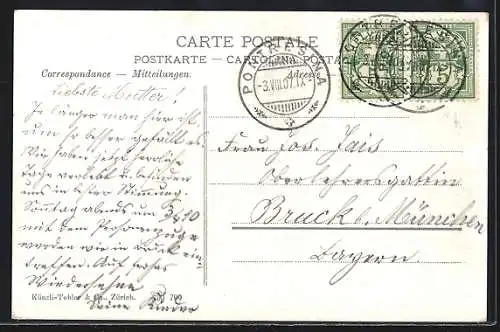 CARTE POSTALE
POSTKARTE — CARTOLINA POSTA
Correspondance — Mitteilungen.
Adresse
PONTRESINA
-3.VIII.07.IX-
5
Liebste Mutter!
Je länger man hier ist
um so besser gefällt es.
Wir haben jetzt herrliche
Tage verlebt u. befinden
uns in bester Stimmung.
Sonntag abends um 3/4 10
mit dem Personenzuge
werden wir in Bruck ein-
treffen. Auf frohes
Wiedersehen
Deine Kinder
Frau Jos. Jais
Oberlehrersgattin
Bruck b. München
Bayern.
Künzli-Tobler & Co., Zürich. 709